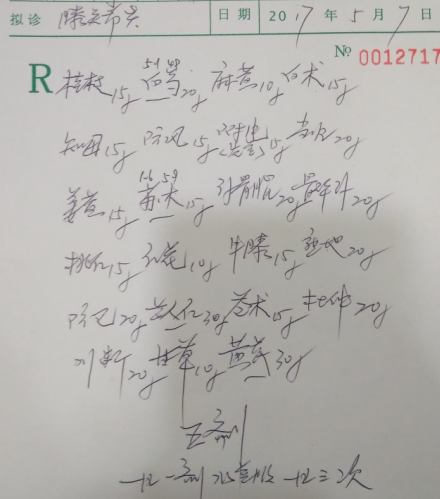 拟诊 日期 2017年5月7日
№ 0012717
R 桂枝15g 白芍20g 麻黄10g 白术15g
知母15g 防风15g 附片(先煎)15g 当归20g
姜黄15g 苍术15g 20g 20g
桃仁15g 红花10g 牛膝15g 熟地20g
防己20g 苡仁30g 莪术15g 杜仲20g
川断20g 甘草10g 黄芪30g
五剂
一日一剂 一日三次